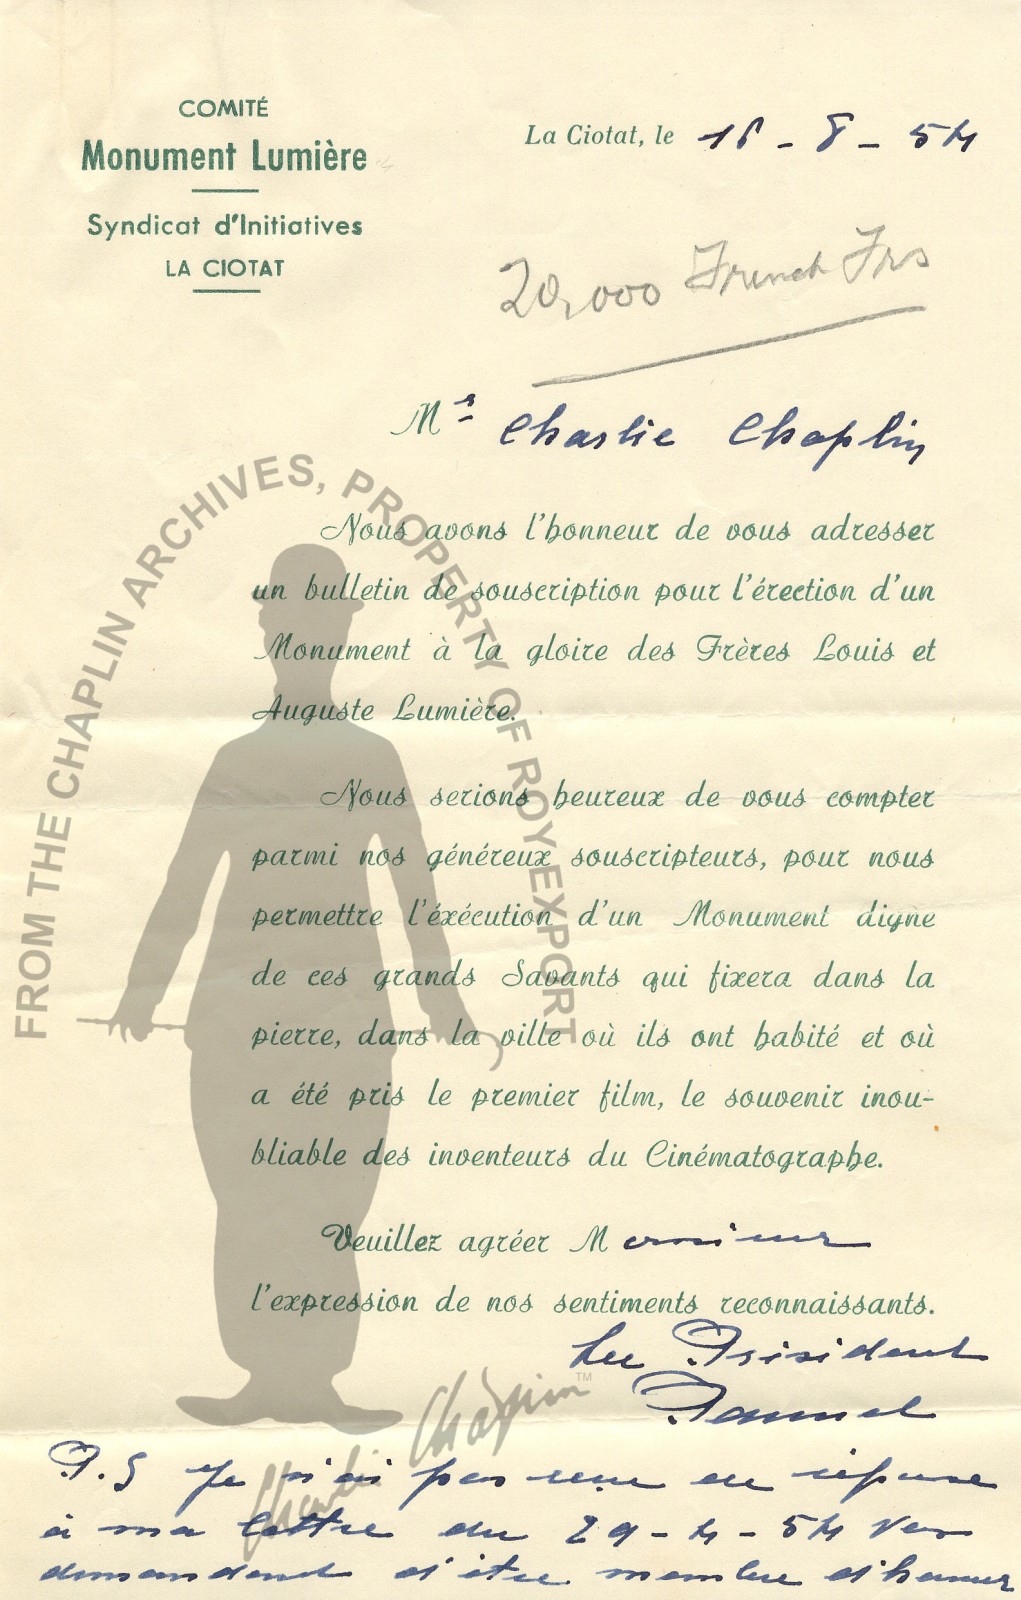 COMITÉ
Monument Lumière
Syndicat d'Initiatives
LA CIOTAT
La Ciotat, le 16 - 8 - 54
20,000 French Frs
Mr Charlie Chaplin
Nous avons l'honneur de vous adresser
un bulletin de souscription pour l'érection d'un
Monument à la gloire des Frères Louis et
Auguste Lumière.
Nous serions heureux de vous compter
parmi nos généreux souscripteurs, pour nous
permettre l'éxécution d'un Monument digne
de ces grands Savants qui fixera dans la
pierre, dans la ville où ils ont habité et où
a été pris le premier film, le souvenir inou-
bliable des inventeurs du Cinématographe.
Veuillez agréer Monsieur
l'expression de nos sentiments reconnaissants.
Le Président
P.S Je n'ai pas reçu de réponse
à ma lettre du 29-4-54 vous
demandant d'être membre d'honneur
FROM THE CHAPLIN ARCHIVES, PROPERTY OF ROY EXPORT
Charlie Chaplin TM